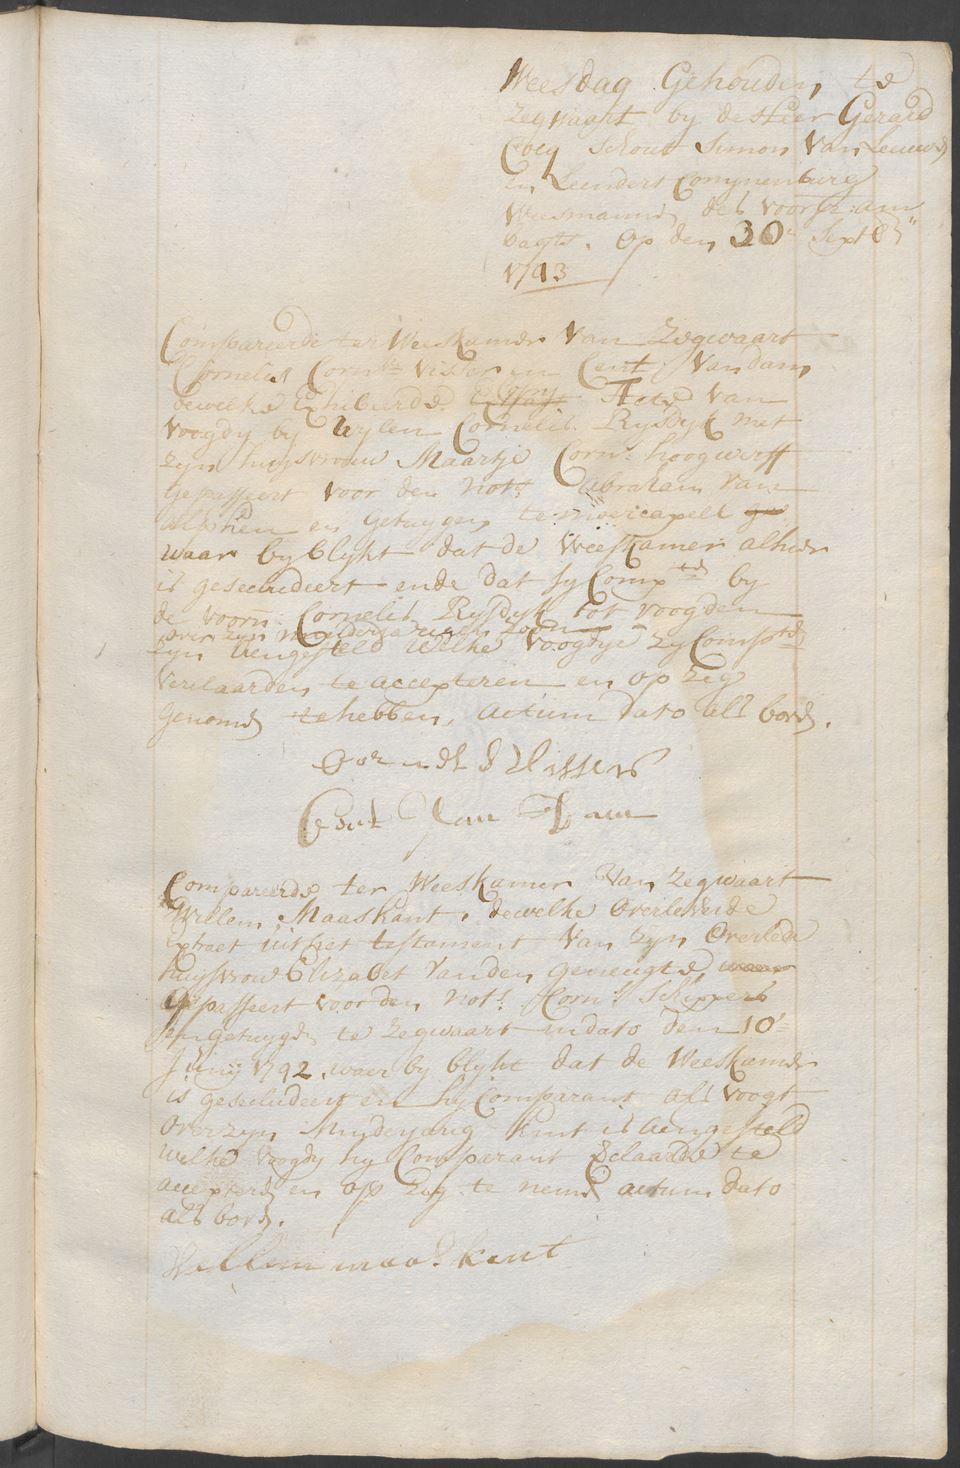 Weesdag Gehouden te
Zegwaart by de Heer Gerard
Cocq Schout Simon Van Leeuwe
en Leendert Commenburg
Weesmannen des voorsz: am
bagts. Op den 30e Septbr
1793
Compareerde ter Weeskamer Van Zegwaart
Cornelis Corn:s Visser en Cent Van dam
dewelke Exhibeerde Acte Van
Voogdy by Wylen Cornelis Rysdyk met
zyn huysvrouw Maartje Corn:s hoogwerff
gepasseert voor den Not:s Abraham Van
Alphen en getuygen te moercapell
waar by blykt dat de Weeskamer alhier
is gesecludeert ende dat sy Comp:ten by
de voorn: Cornelis Rysdyk tot voogden
over zyn minderjarigen zoon
zyn aengesteld Welke Voogdye zy Comp:ten
verclaarden te accepteren en op zeg
genomen te hebben, actum dato als boven.
Cornelis Visser
Cent Van Dam
Compareerde ter Weeskamer Van Zegwaart
Willem Maaskant, dewelke Overleverde
Extract uit het testament Van zyn Overlede
huysvrouw Elizabet Vanden geneugte
Gepasseert voor den Not:s Corn:s Schippers
en getuygen te Zegwaart in dato den 10e
Juny 1792. waer by blykt dat de Weeskamer
is gesecludeert en hy Comparant als Voogt
Over zyn Minderjarig kint is aengesteld
Welke Voogdy hy Comparant Verclaarde te
accepteren en op Zeg te nemen actum dato
als boven.
Willem maaskant